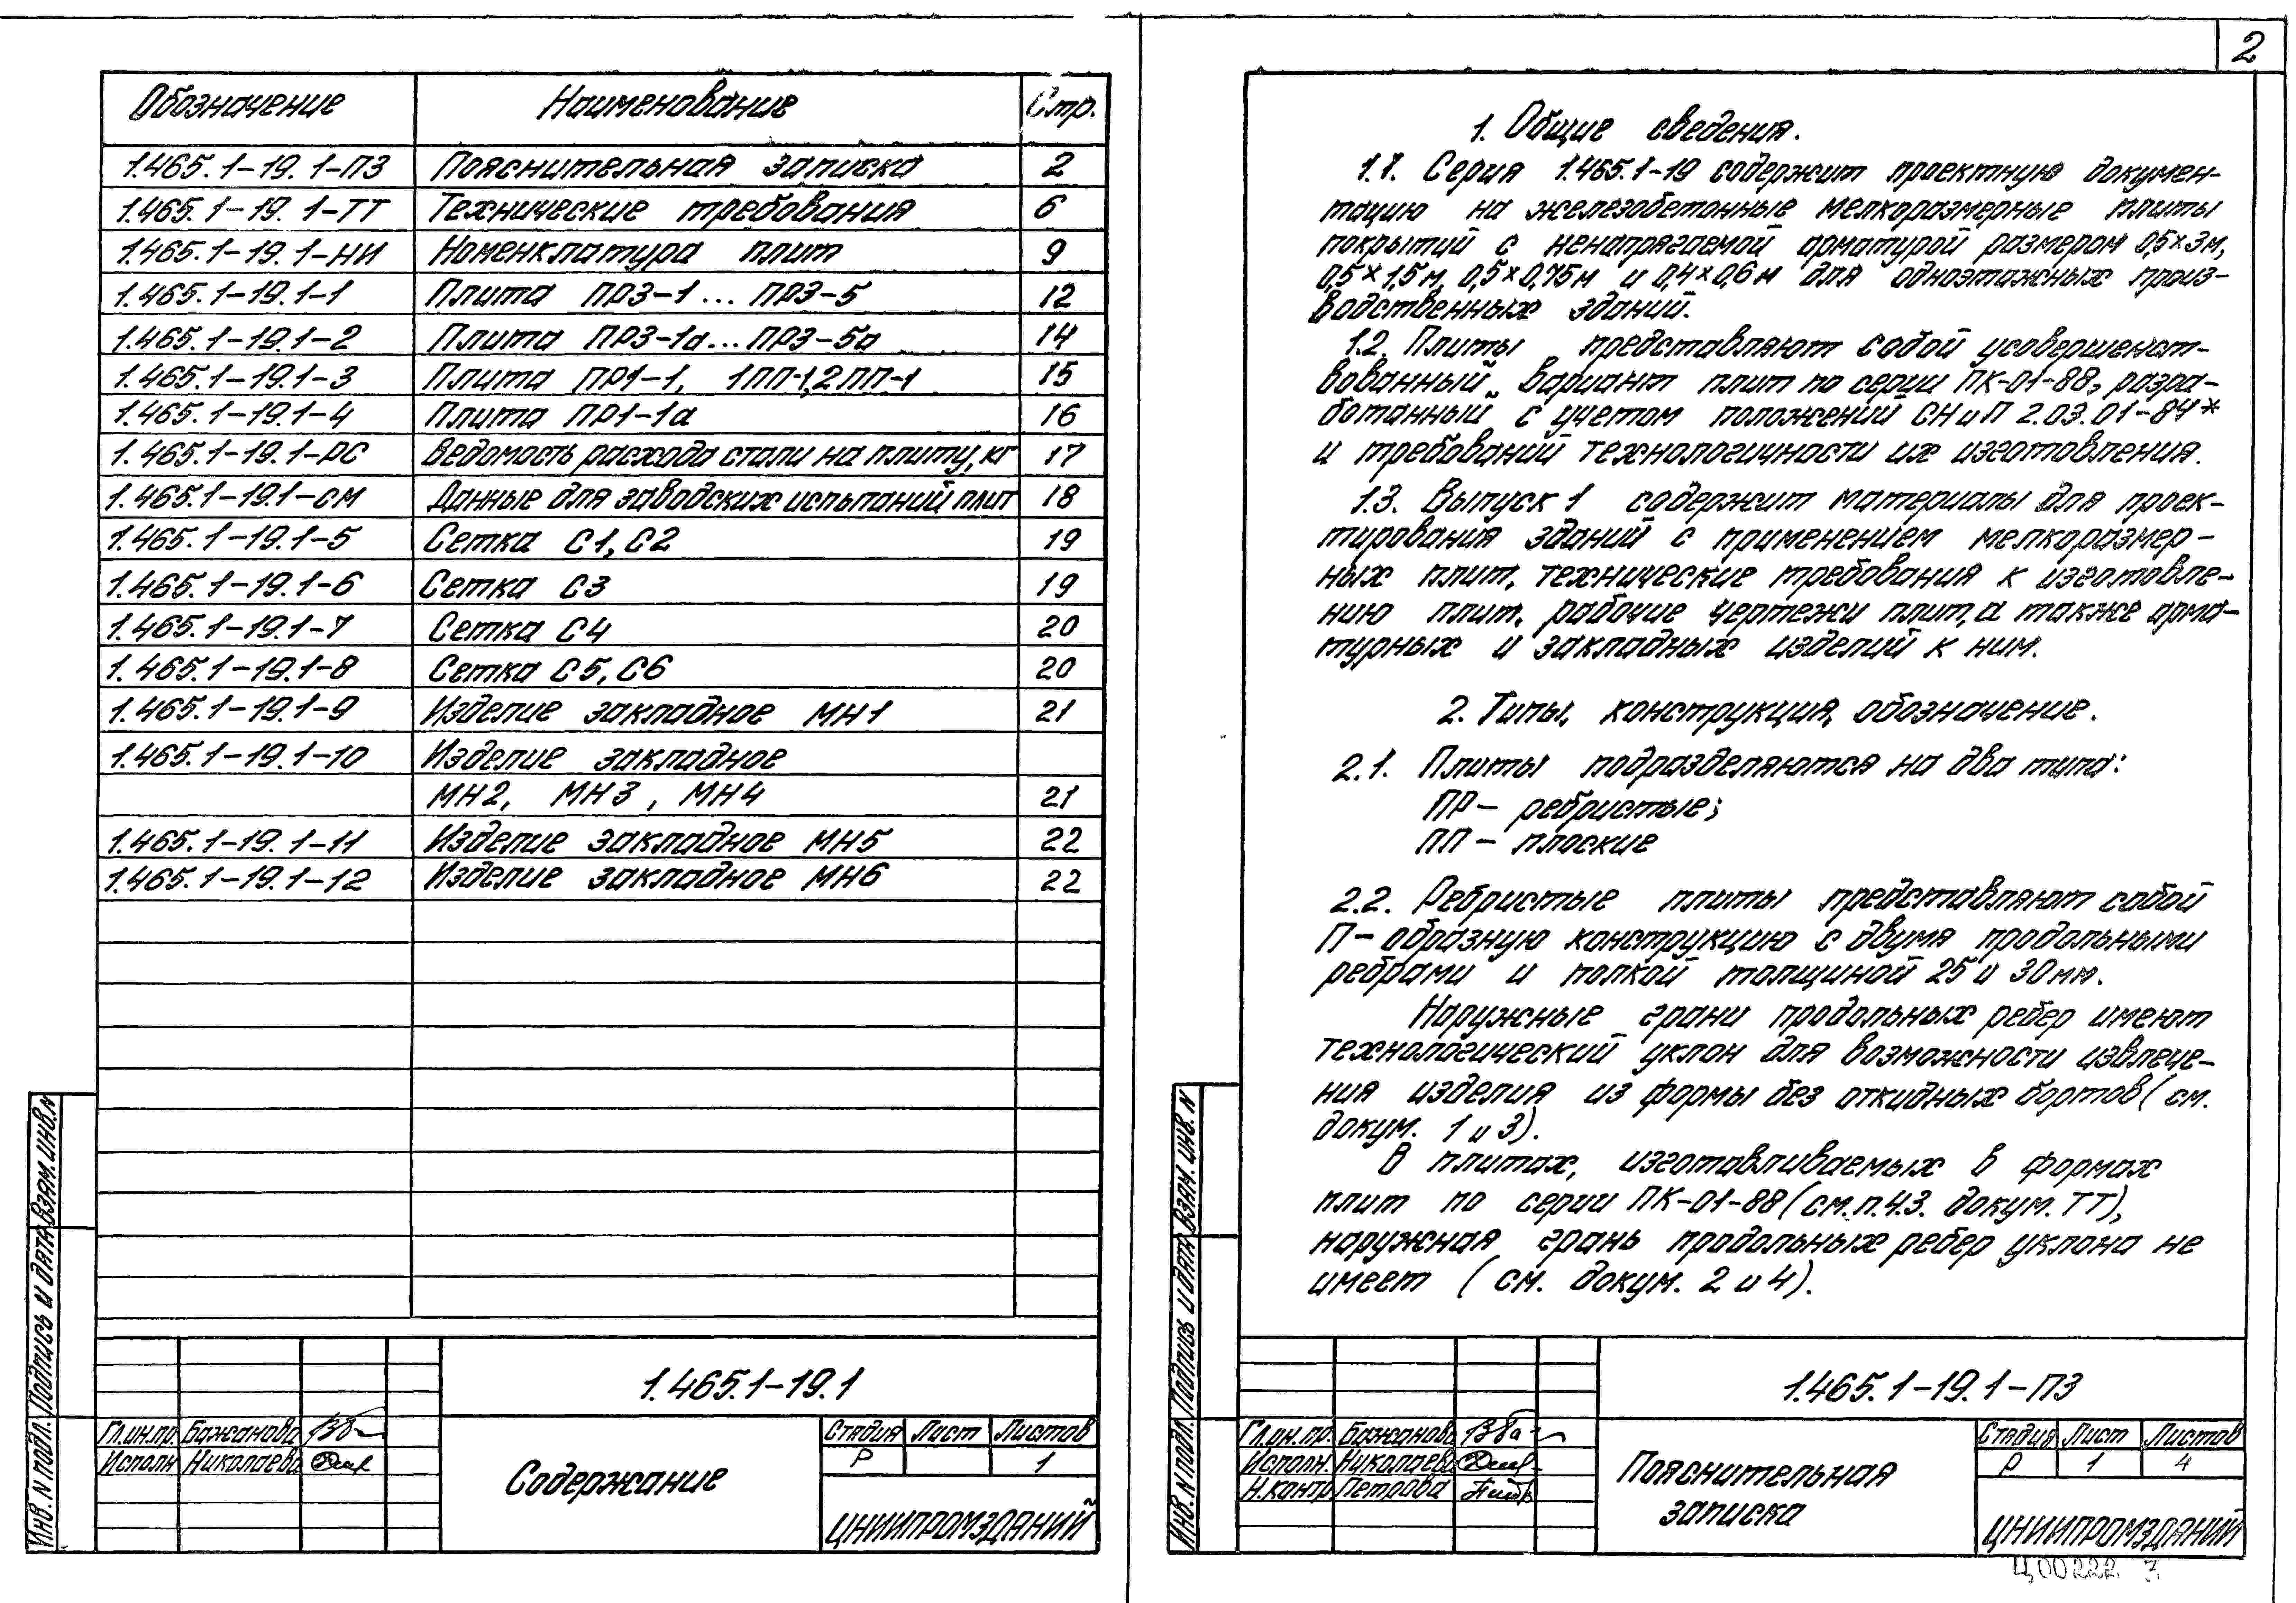 Обозначение Наименование Стр.
1.465.1-19.1-ПЗ Пояснительная записка 2
1.465.1-19.1-ТТ Технические требования 6
1.465.1-19.1-НИ Номенклатура плит 9
1.465.1-19.1-1 Плита ПР3-1...ПР3-5 12
1.465.1-19.1-2 Плита ПР3-1а...ПР3-5а 14
1.465.1-19.1-3 Плита ПР1-1, 1ПП-1,2ПП-1 15
1.465.1-19.1-4 Плита ПР1-1а 16
1.465.1-19.1-РС Ведомость расхода стали на плиту, кг 17
1.465.1-19.1-СМ Данные для заводских испытаний плит 18
1.465.1-19.1-5 Сетка С1, С2 19
1.465.1-19.1-6 Сетка С3 19
1.465.1-19.1-7 Сетка С4 20
1.465.1-19.1-8 Сетка С5, С6 20
1.465.1-19.1-9 Изделие закладное МН1 21
1.465.1-19.1-10 Изделие закладное
МН2, МН3, МН4 21
1.465.1-19.1-11 Изделие закладное МН5 22
1.465.1-19.1-12 Изделие закладное МН6 22
Инв. N подл. Подпись и дата Взам. инв. N
1.465.1-19.1
Гл.ин.пр. Бажанова
Исполн. Николаева
Содержание
Стадия Лист Листов
Р 1
ЦНИИПРОМЗДАНИЙ
2
1. Общие сведения.
1.1. Серия 1.465.1-19 содержит проектную докумен-
тацию на железобетонные мелкоразмерные плиты
покрытий с ненапрягаемой арматурой размером 0,5×3м,
0,5×1,5м, 0,5×0,75м и 0,4×0,6м для одноэтажных произ-
водственных зданий.
1.2. Плиты представляют собой усовершенст-
вованный вариант плит по серии ПК-01-88, разра-
ботанный с учетом положений СНиП 2.03.01-84*
и требований технологичности их изготовления.
1.3. Выпуск 1 содержит материалы для проек-
тирования зданий с применением мелкоразмер-
ных плит, технические требования к изготовле-
нию плит, рабочие чертежи плит, а также арма-
турных и закладных изделий к ним.
2. Типы, конструкция, обозначение.
2.1. Плиты подразделяются на два типа:
ПР- ребристые;
ПП- плоские
2.2. Ребристые плиты представляют собой
П-образную конструкцию с двумя продольными
ребрами и полкой толщиной 25 и 30мм.
Наружные грани продольных ребер имеют
технологический уклон для возможности извлече-
ния изделия из формы без откидных бортов (см.
докум. 1 и 3).
В плитах, изготавливаемых в формах
плит по серии ПК-01-88 (см.п.4.3. докум. ТТ),
наружная грань продольных ребер уклона не
имеет (см. докум. 2 и 4).
Инв. N подл. Подпись и дата Взам. инв. N
1.465.1-19.1-ПЗ
Гл.ин.пр. Бажанова
Исполн. Николаева
Н.контр. Петрова
Пояснительная
записка
Стадия Лист Листов
Р 1 4
ЦНИИПРОМЗДАНИЙ
Ц00222 3